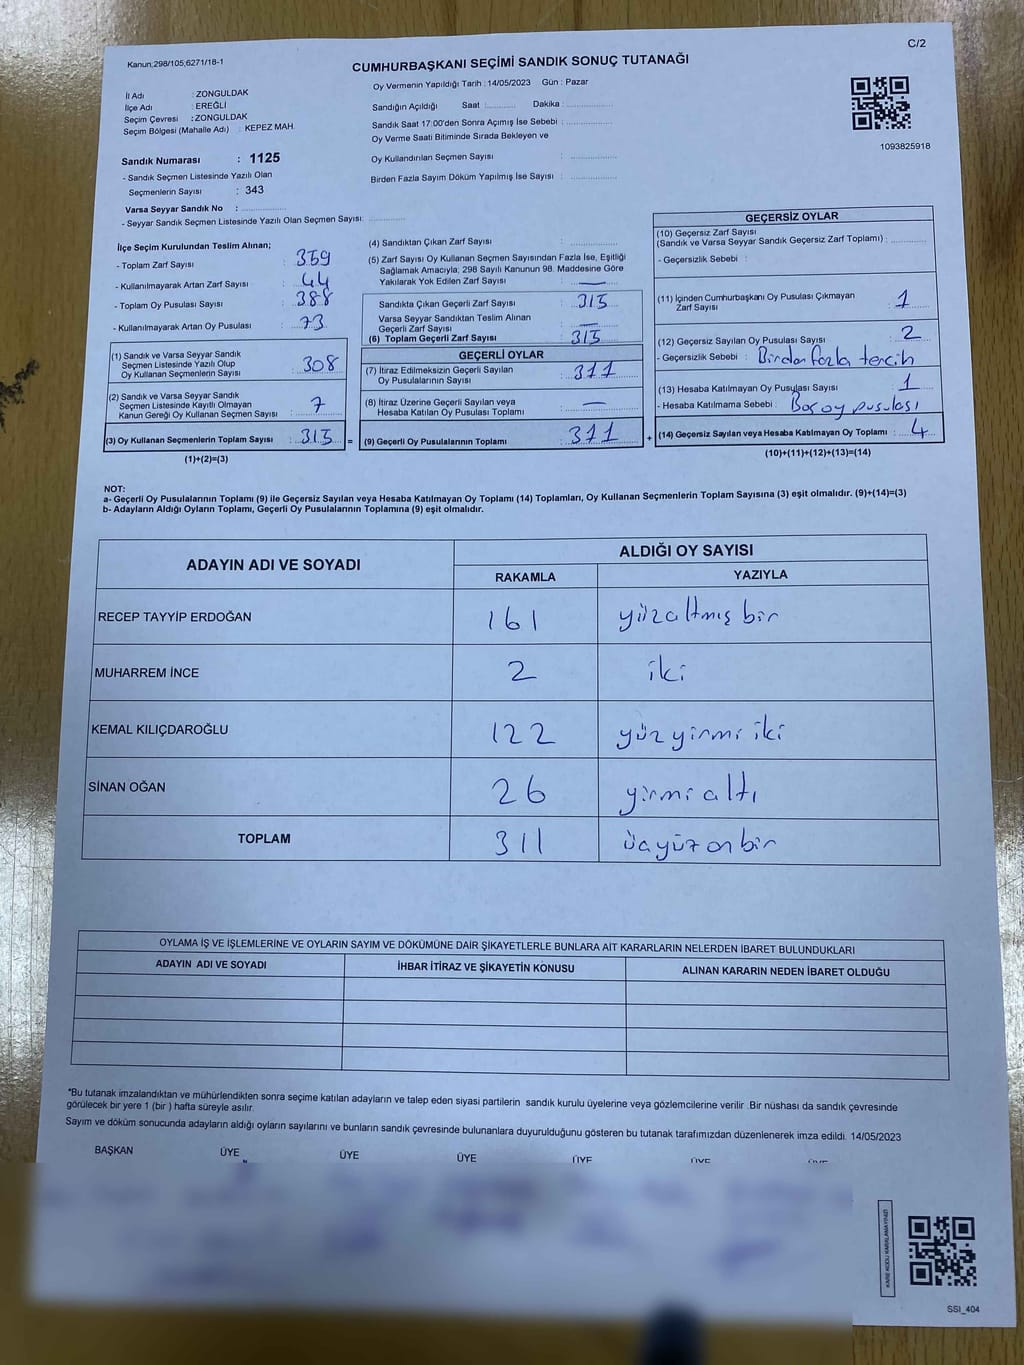 C/2
Kanun;298/105;6271/18-1
CUMHURBAŞKANI SEÇİMİ SANDIK SONUÇ TUTANAĞI
İl Adı : ZONGULDAK
İlçe Adı : EREĞLİ
Seçim Çevresi : ZONGULDAK
Seçim Bölgesi (Mahalle Adı) : KEPEZ MAH.
Sandık Numarası : 1125
- Sandık Seçmen Listesinde Yazılı Olan
Seçmenlerin Sayısı : 343
Varsa Seyyar Sandık No :
- Seyyar Sandık Seçmen Listesinde Yazılı Olan Seçmen Sayısı:
Oy Vermenin Yapıldığı Tarih : 14/05/2023 Gün : Pazar
Sandığın Açıldığı Saat : Dakika :
Sandık Saat 17:00'den Sonra Açımış İse Sebebi :
Oy Verme Saati Bitiminde Sırada Bekleyen ve
Oy Kullandırılan Seçmen Sayısı :
Birden Fazla Sayım Döküm Yapılmış İse Sayısı :
1093825918
İlçe Seçim Kurulundan Teslim Alınan;
- Toplam Zarf Sayısı : 359
- Kullanılmayarak Artan Zarf Sayısı : 44
- Toplam Oy Pusulası Sayısı : 388
- Kullanılmayarak Artan Oy Pusulası : 73
(1) Sandık ve Varsa Seyyar Sandık
Seçmen Listesinde Yazılı Olup
Oy Kullanan Seçmenlerin Sayısı : 308
(2) Sandık ve Varsa Seyyar Sandık
Seçmen Listesinde Kayıtlı Olmayan
Kanun Gereği Oy Kullanan Seçmen Sayısı : 7
(3) Oy Kullanan Seçmenlerin Toplam Sayısı : 315 =
(1)+(2)=(3)
(4) Sandıktan Çıkan Zarf Sayısı :
(5) Zarf Sayısı Oy Kullanan Seçmen Sayısından Fazla İse, Eşitliği
Sağlamak Amacıyla; 298 Sayılı Kanunun 98. Maddesine Göre
Yakılarak Yok Edilen Zarf Sayısı : —
Sandıkta Çıkan Geçerli Zarf Sayısı : 315
Varsa Seyyar Sandıktan Teslim Alınan
Geçerli Zarf Sayısı : —
(6) Toplam Geçerli Zarf Sayısı : 315
GEÇERLİ OYLAR
(7) İtiraz Edilmeksizin Geçerli Sayılan
Oy Pusulalarının Sayısı : 311
(8) İtiraz Üzerine Geçerli Sayılan veya
Hesaba Katılan Oy Pusulası Toplamı : —
(9) Geçerli Oy Pusulalarının Toplamı : 311 +
GEÇERSİZ OYLAR
(10) Geçersiz Zarf Sayısı
(Sandık ve Varsa Seyyar Sandık Geçersiz Zarf Toplamı) :
- Geçersizlik Sebebi :
(11) İçinden Cumhurbaşkanı Oy Pusulası Çıkmayan
Zarf Sayısı : 1
(12) Geçersiz Sayılan Oy Pusulası Sayısı : 2
- Geçersizlik Sebebi : Birden fazla tercih
(13) Hesaba Katılmayan Oy Pusulası Sayısı : 1
- Hesaba Katılmama Sebebi : Boş oy pusulası
(14) Geçersiz Sayılan veya Hesaba Katılmayan Oy Toplamı : 4
(10)+(11)+(12)+(13)=(14)
NOT:
a- Geçerli Oy Pusulalarının Toplamı (9) ile Geçersiz Sayılan veya Hesaba Katılmayan Oy Toplamı (14) Toplamları, Oy Kullanan Seçmenlerin Toplam Sayısına (3) eşit olmalıdır. (9)+(14)=(3)
b- Adayların Aldığı Oyların Toplamı, Geçerli Oy Pusulalarının Toplamına (9) eşit olmalıdır.
ADAYIN ADI VE SOYADI
ALDIĞI OY SAYISI
RAKAMLA YAZIYLA
RECEP TAYYİP ERDOĞAN 161 yüzaltmış bir
MUHARREM İNCE 2 iki
KEMAL KILIÇDAROĞLU 122 yüz yirmi iki
SİNAN OĞAN 26 yirmi altı
TOPLAM 311 üçyüz on bir
OYLAMA İŞ VE İŞLEMLERİNE VE OYLARIN SAYIM VE DÖKÜMÜNE DAİR ŞİKAYETLERLE BUNLARA AİT KARARLARIN NELERDEN İBARET BULUNDUKLARI
ADAYIN ADI VE SOYADI İHBAR İTİRAZ VE ŞİKAYETİN KONUSU ALINAN KARARIN NEDEN İBARET OLDUĞU
*Bu tutanak imzalandıktan ve mühürlendikten sonra seçime katılan adayların ve talep eden siyasi partilerin sandık kurulu üyelerine veya gözlemcilerine verilir .Bir nüshası da sandık çevresinde
görülecek bir yere 1 (bir ) hafta süreyle asılır.
Sayım ve döküm sonucunda adayların aldığı oyların sayılarını ve bunların sandık çevresinde bulunanlara duyurulduğunu gösteren bu tutanak tarafımızdan düzenlenerek imza edildi. 14/05/2023
BAŞKAN ÜYE ÜYE ÜYE ÜYE ÜYE ÜYE
SSI_404